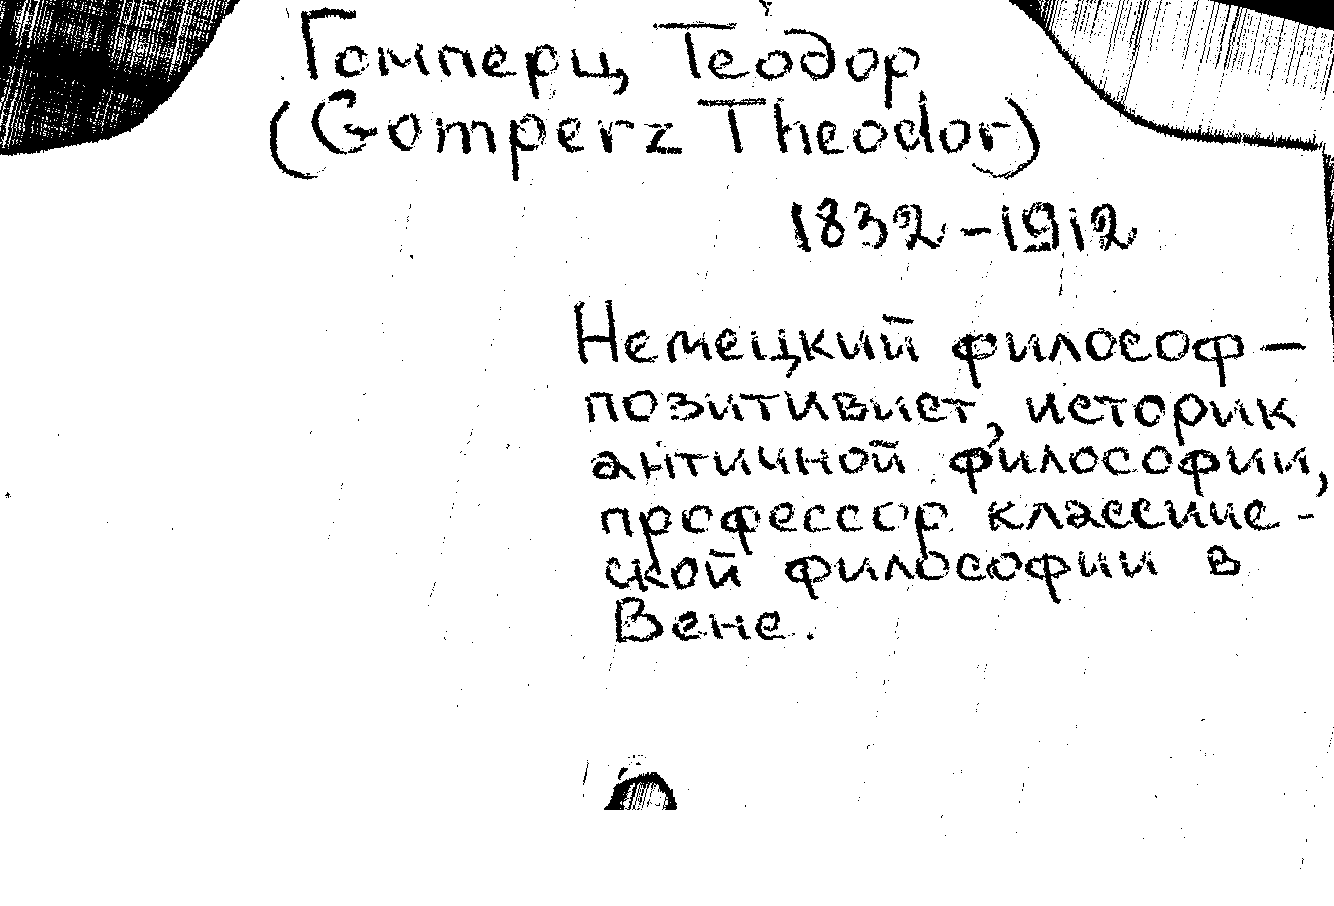 Гомперц, Теодор
(Gomperz Theodor)
1832-1912
Немецкий философ -
позитивист, историк
античной философии,
профессор классиче-
ской философии в
Вене.